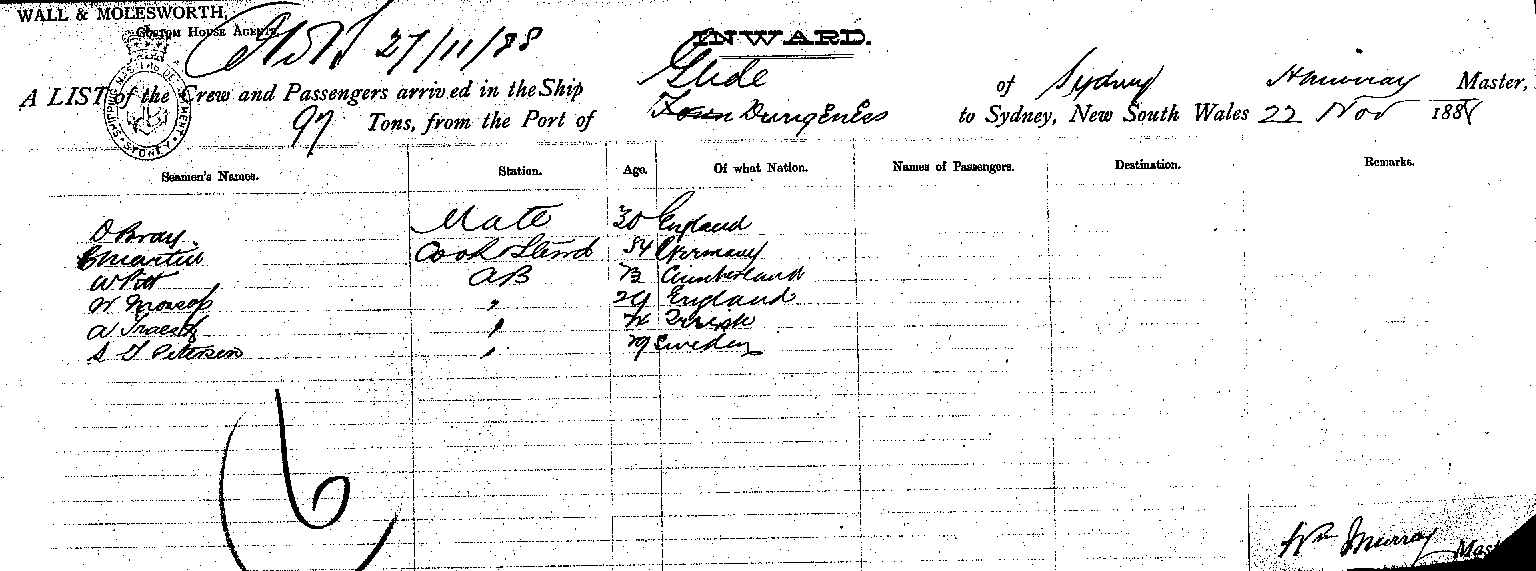 WALL & MOLESWORTH,
CUSTOM HOUSE AGENTS.
27/11/88
INWARD.
SHIPPING MASTER'S DEPARTMENT SYDNEY
A LIST of the Crew and Passengers arrived in the Ship Glide of Sydney H Murray Master,
97 Tons, from the Port of Dungeness to Sydney, New South Wales 22 Nov 1888
Seamen's Names. Station. Age. Of what Nation. Names of Passengers. Destination. Remarks.
D Bray. Mate 30 England
Martin Cook & Stewd 54 Germany
W Pitt AB Cumberland
W Mossop " 24 England
A "
S F Petersen " 29 Sweden
6
Wm Murray Master